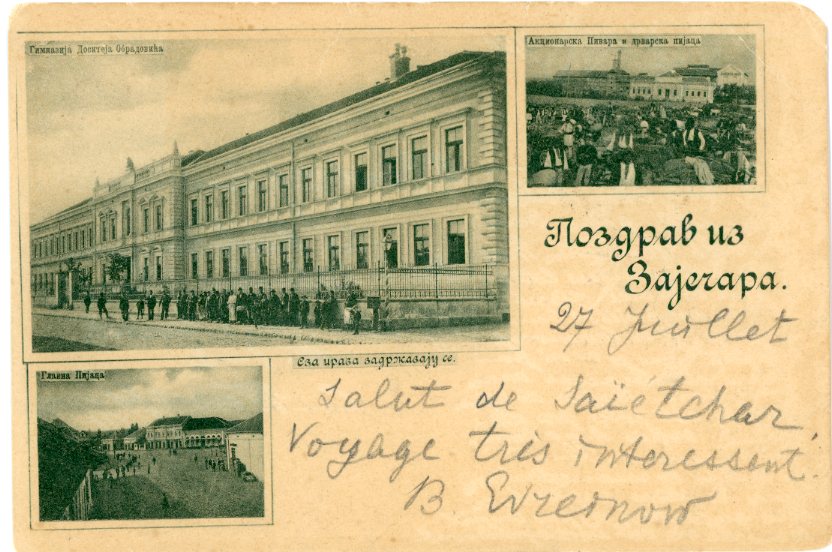 Гимназија Доситеја Обрадовића
Акционарска Пивара и дрварска пијаца
Поздрав из
Зајечара.
27 Juillet
Сва права задржавају се.
Главна Пијаца
Salut de Saïétchar,
Voyage tris interessent.
B.